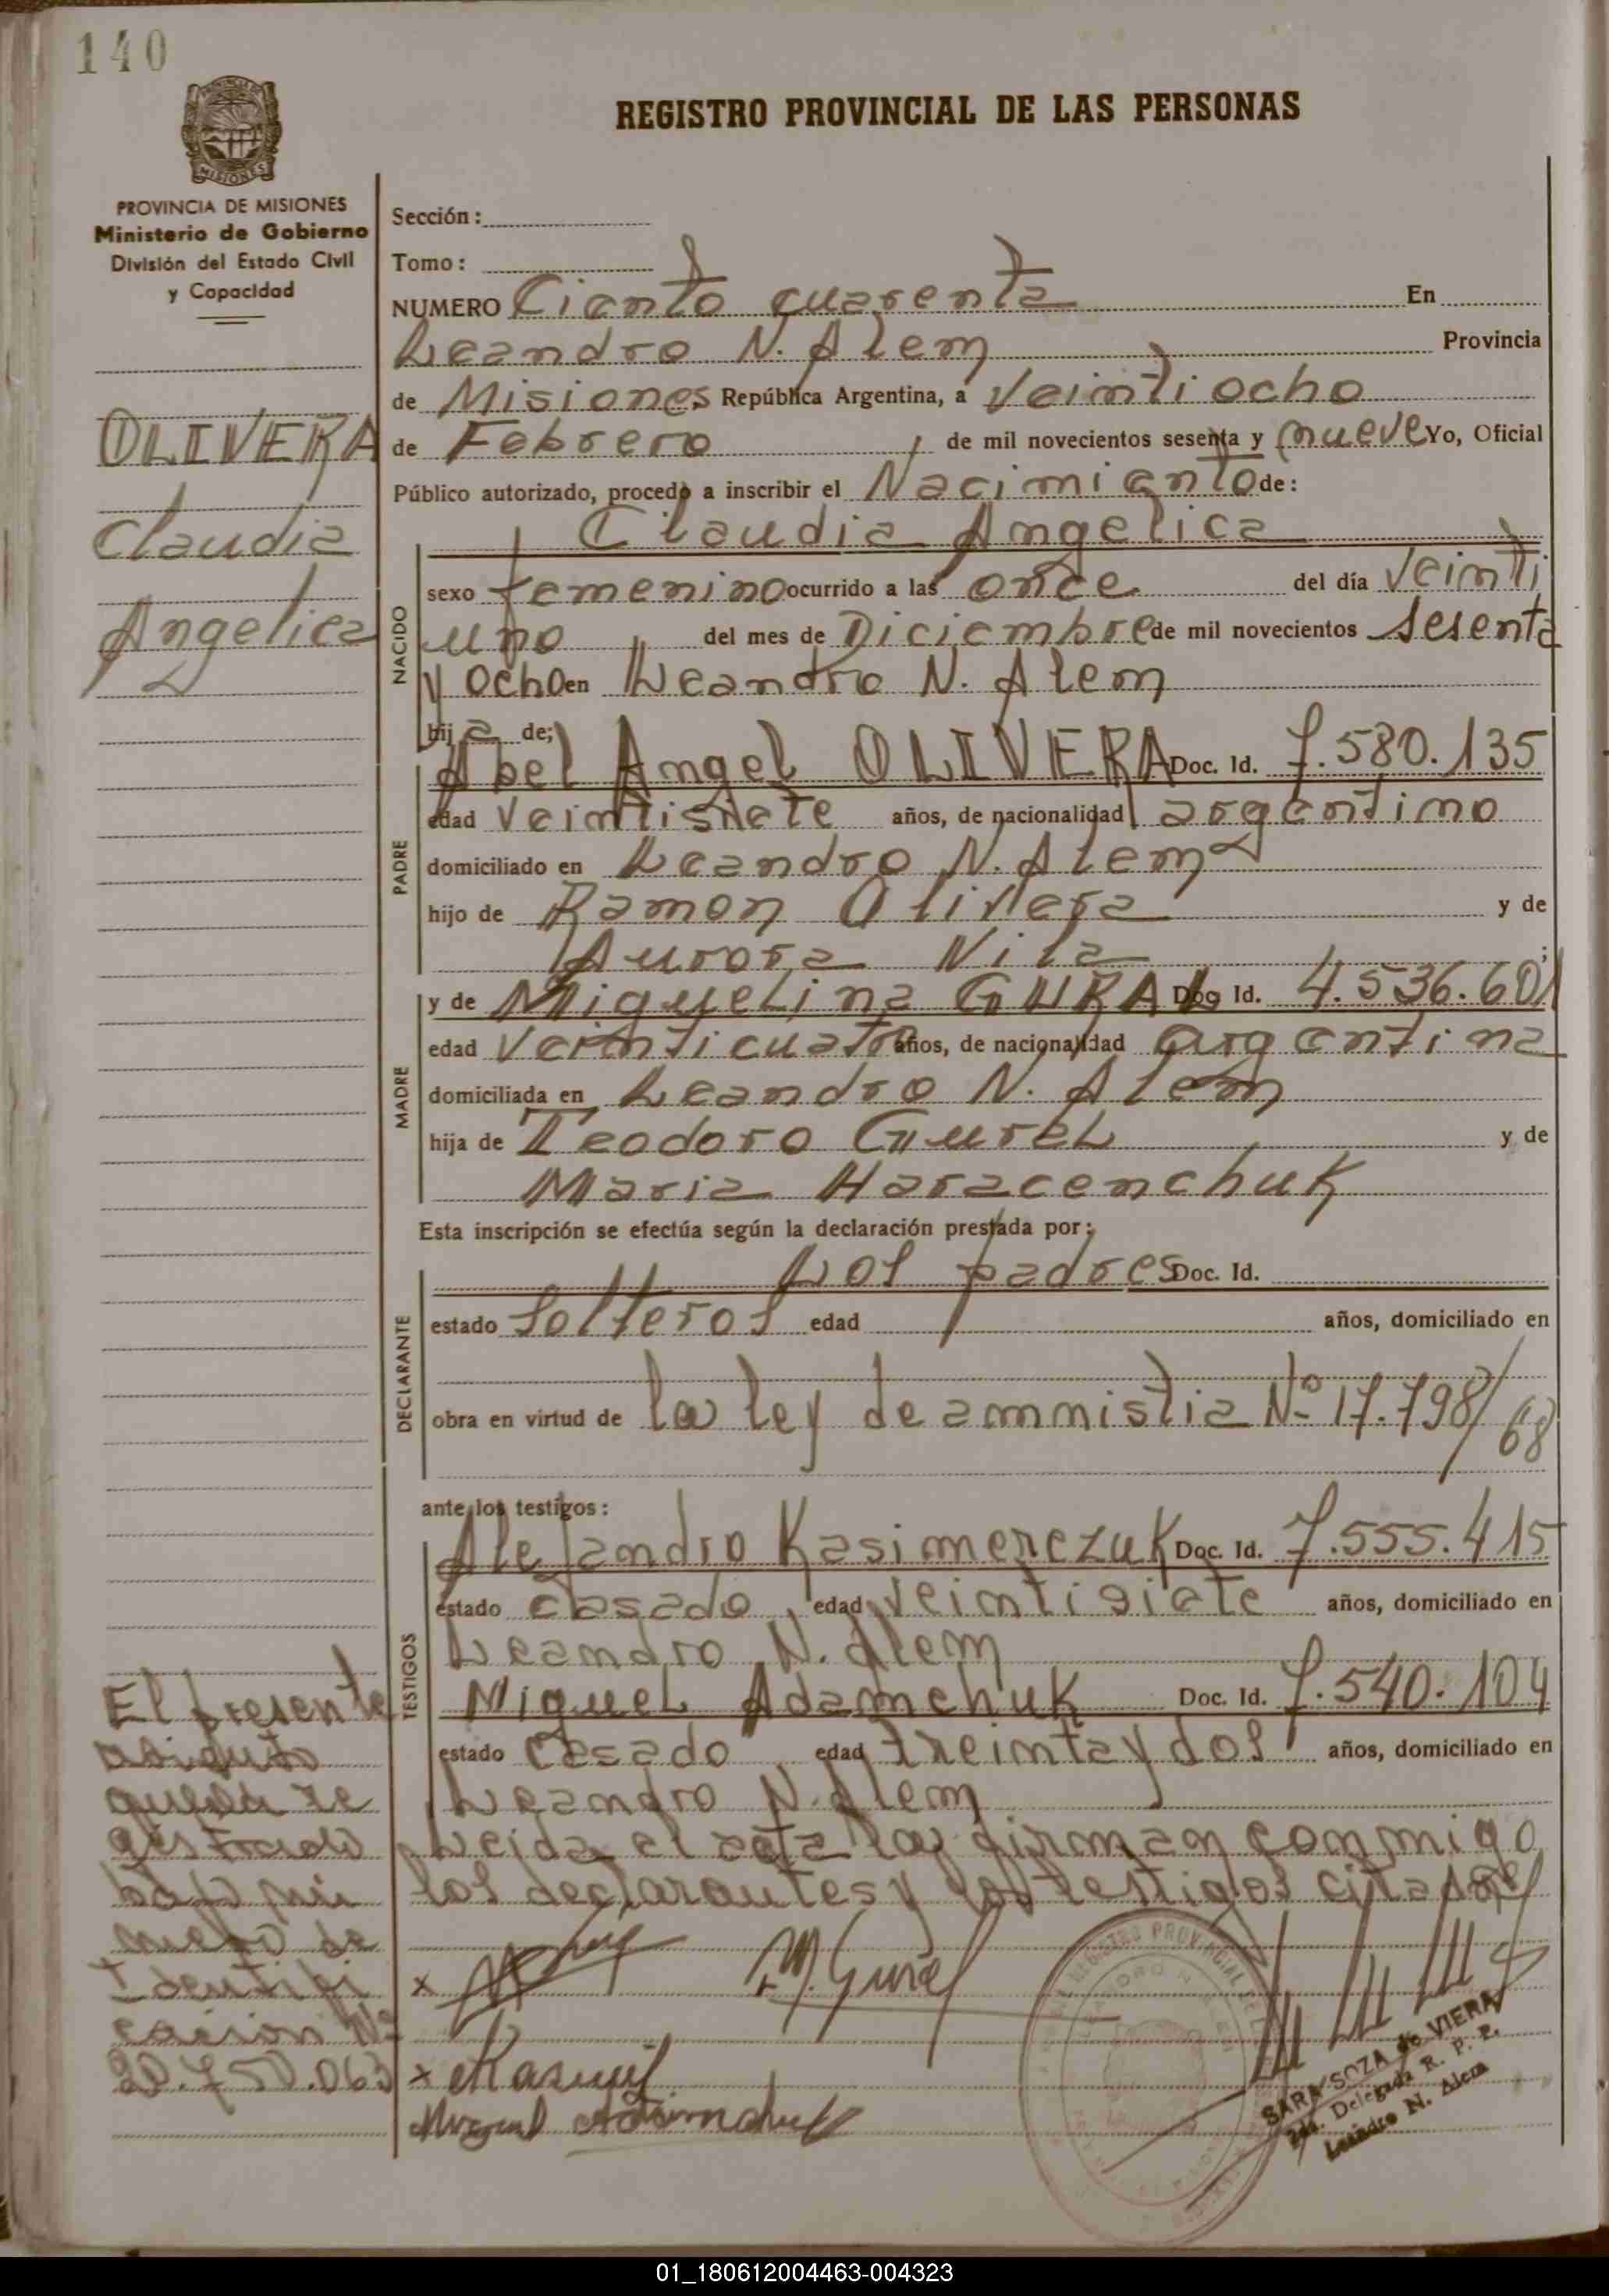 140
PROVINCIA DE MISIONES
Ministerio de Gobierno
División del Estado Civil
y Capacidad
REGISTRO PROVINCIAL DE LAS PERSONAS
Sección:
Tomo:
NUMERO Ciento cuarenta En
Leandro N. Alem Provincia
de Misiones República Argentina, a Veintiocho
de Febrero de mil novecientos sesenta y nueve Yo, Oficial
Público autorizado, procedo a inscribir el Nacimiento de:
OLIVERA
Claudia
Angelica
Claudia Angelica
NACIDO
sexo femenino ocurrido a las once del día Veinti
uno del mes de Diciembre de mil novecientos sesenta
y ocho en Leandro N. Alem
hija de;
PADRE
Abel Angel OLIVERA Doc. Id. 7.580.135
edad veintisiete años, de nacionalidad argentino
domiciliado en Leandro N. Alem
hijo de Ramon Olivera y de
Aurora Vila ;
MADRE
y de Miguelina GURAL Doc Id. 4.536.601
edad Veinticuatro años, de nacionalidad argentina
domiciliada en Leandro N. Alem
hija de Teodoro Gural y de
Maria Haracenchuk
Esta inscripción se efectúa según la declaración prestada por:
DECLARANTE
Los padres Doc. Id.
estado Solteros edad años, domiciliado en
obra en virtud de la ley de amnistia Nº 17.798/68
ante los testigos:
TESTIGOS
Alejandro Kasimerczuk Doc. Id. 7.555.415
estado casado edad veintisiete años, domiciliado en
Leandro N. Alem
Miguel Adamchuk Doc. Id. 7.540.104
estado casado edad treinta y dos años, domiciliado en
Leandro N. Alem
Leida el acta la firman conmigo
los declarantes y los testigos citados
El presente
asiento
queda re
gistrado
bajo nú
mero de
Identifi
cación Nº
20.750.063
x
M. Gural
x
Miguel Adamchuk
REGISTRO PROVINCIAL DE L
SARA SOZA de VIERA
Delegada R. P. P.
Leandro N. Alem
01_180612004463-004323